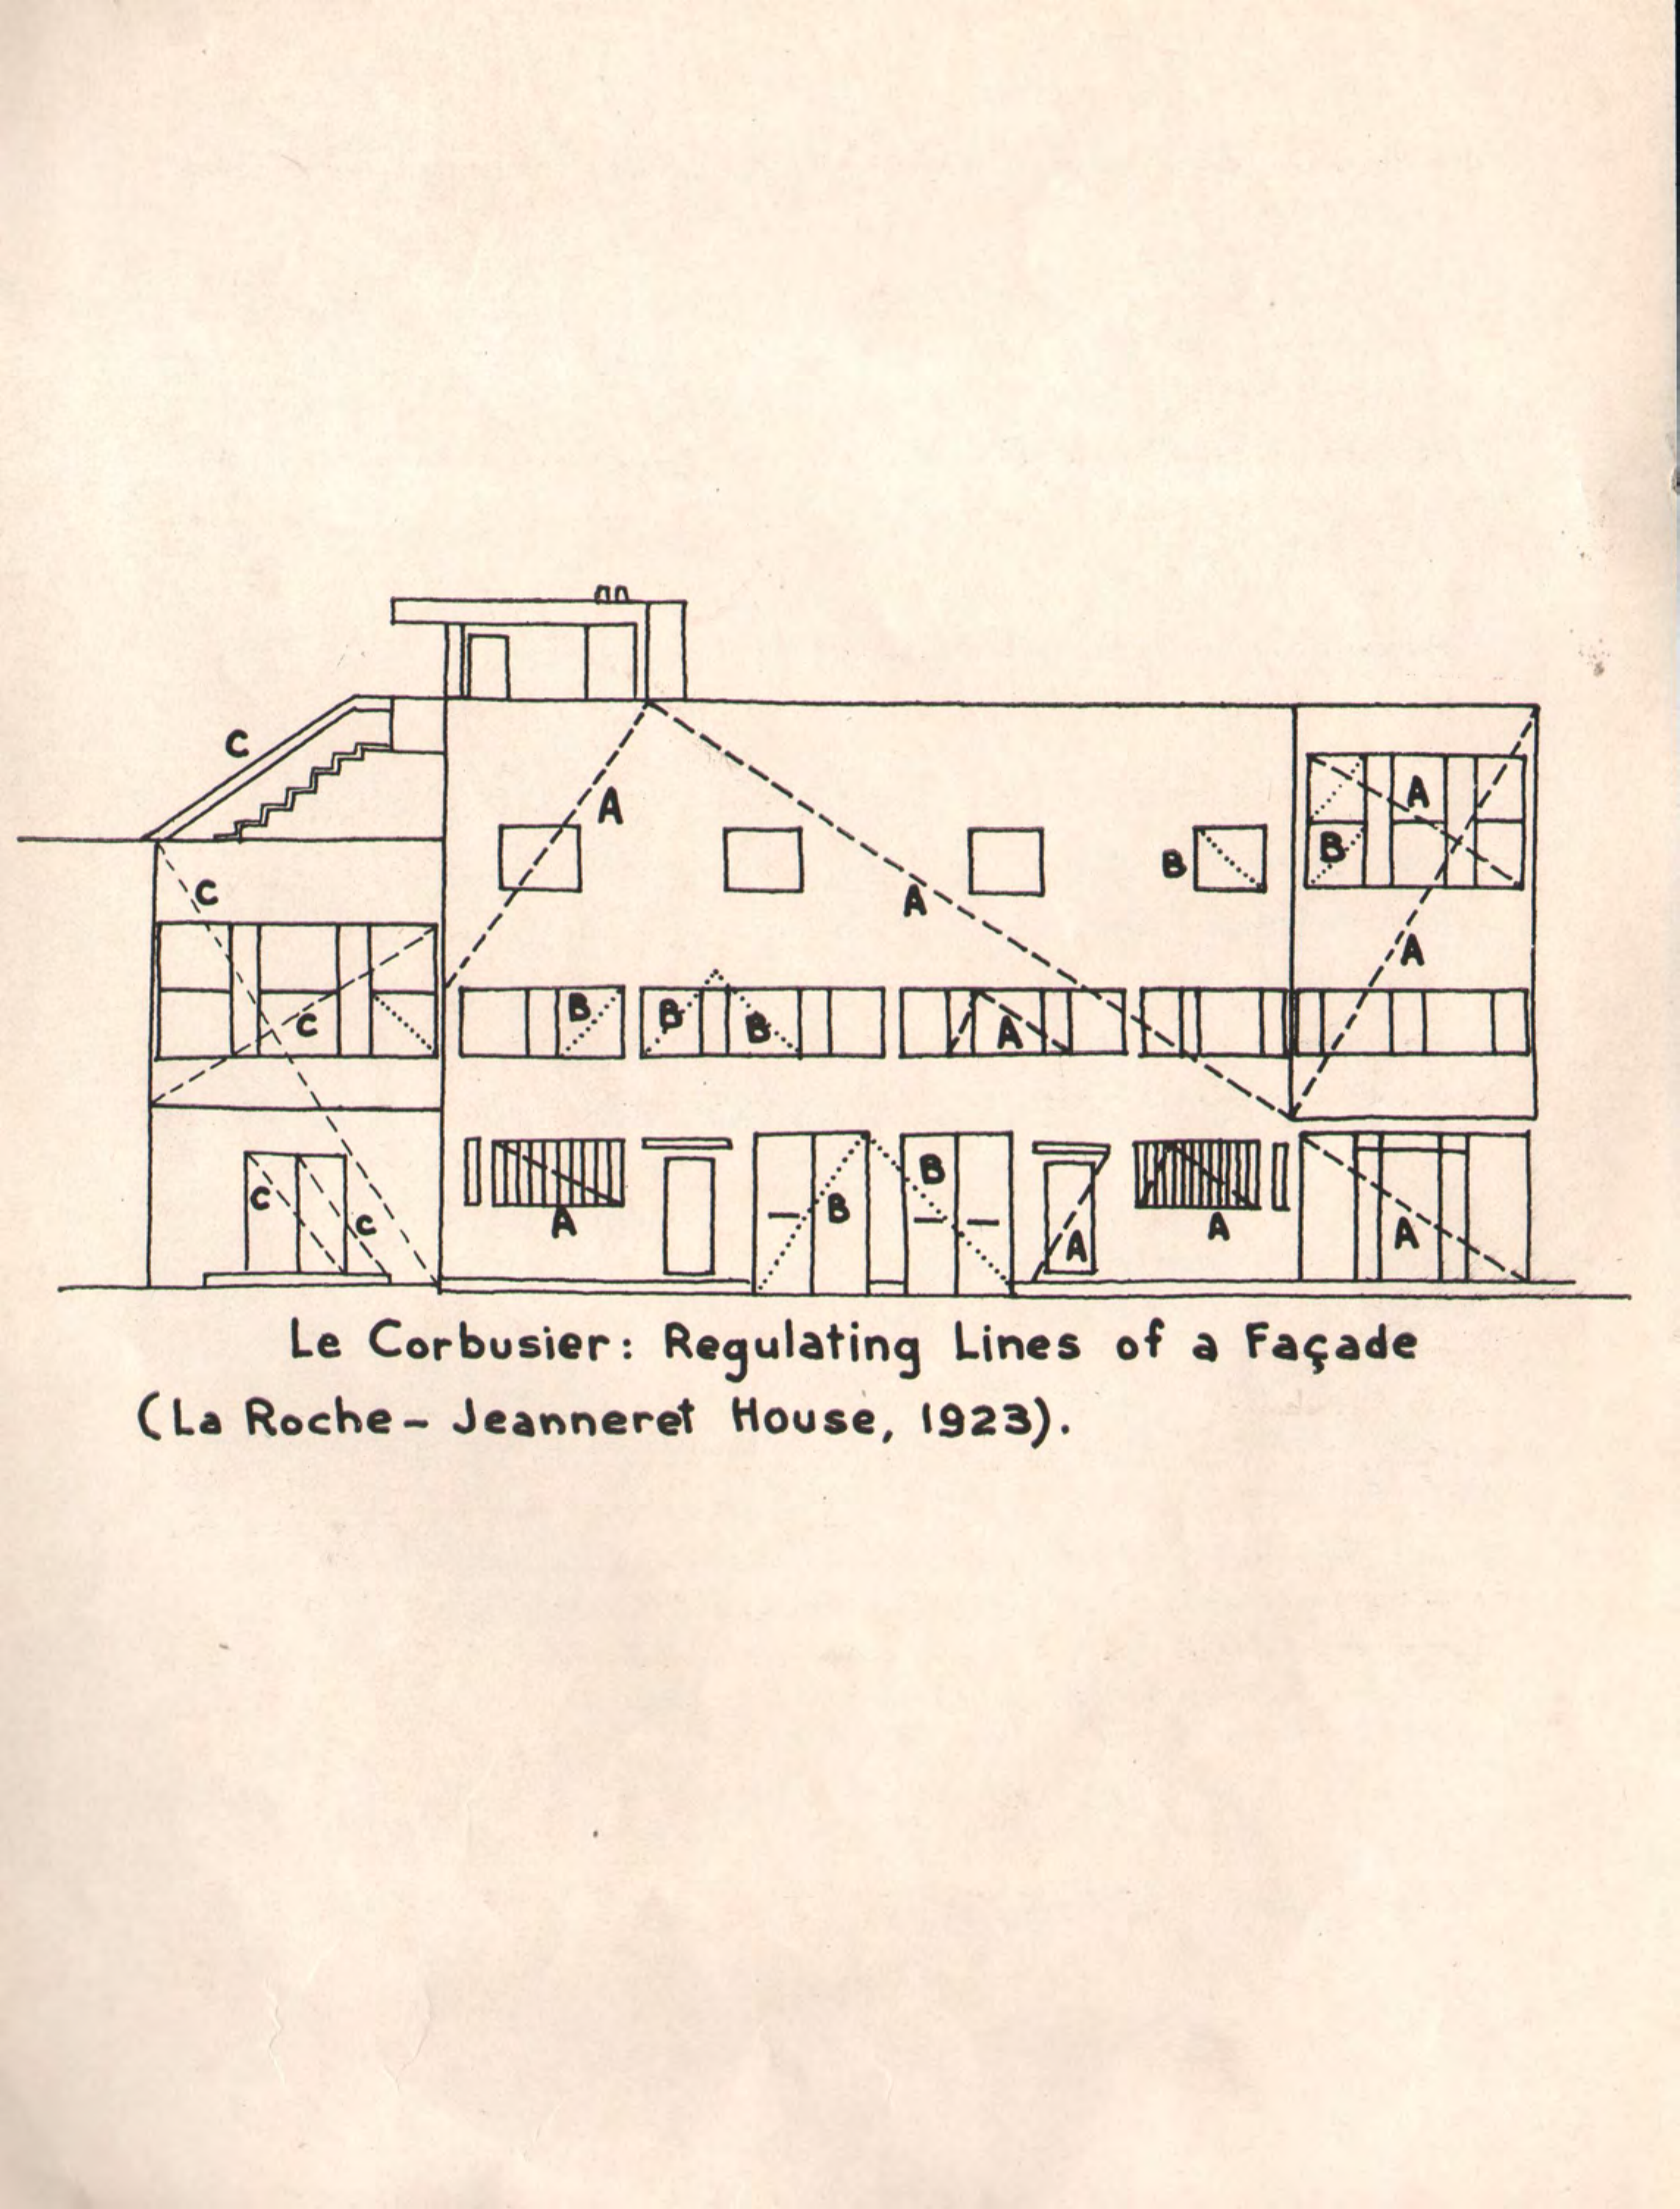 C
A
A
B
A
B
C
A
B
B
B
A
C
C
C
A
B
B
A
A
A
Le Corbusier: Regulating Lines of a Façade
(La Roche – Jeanneret House, 1923).